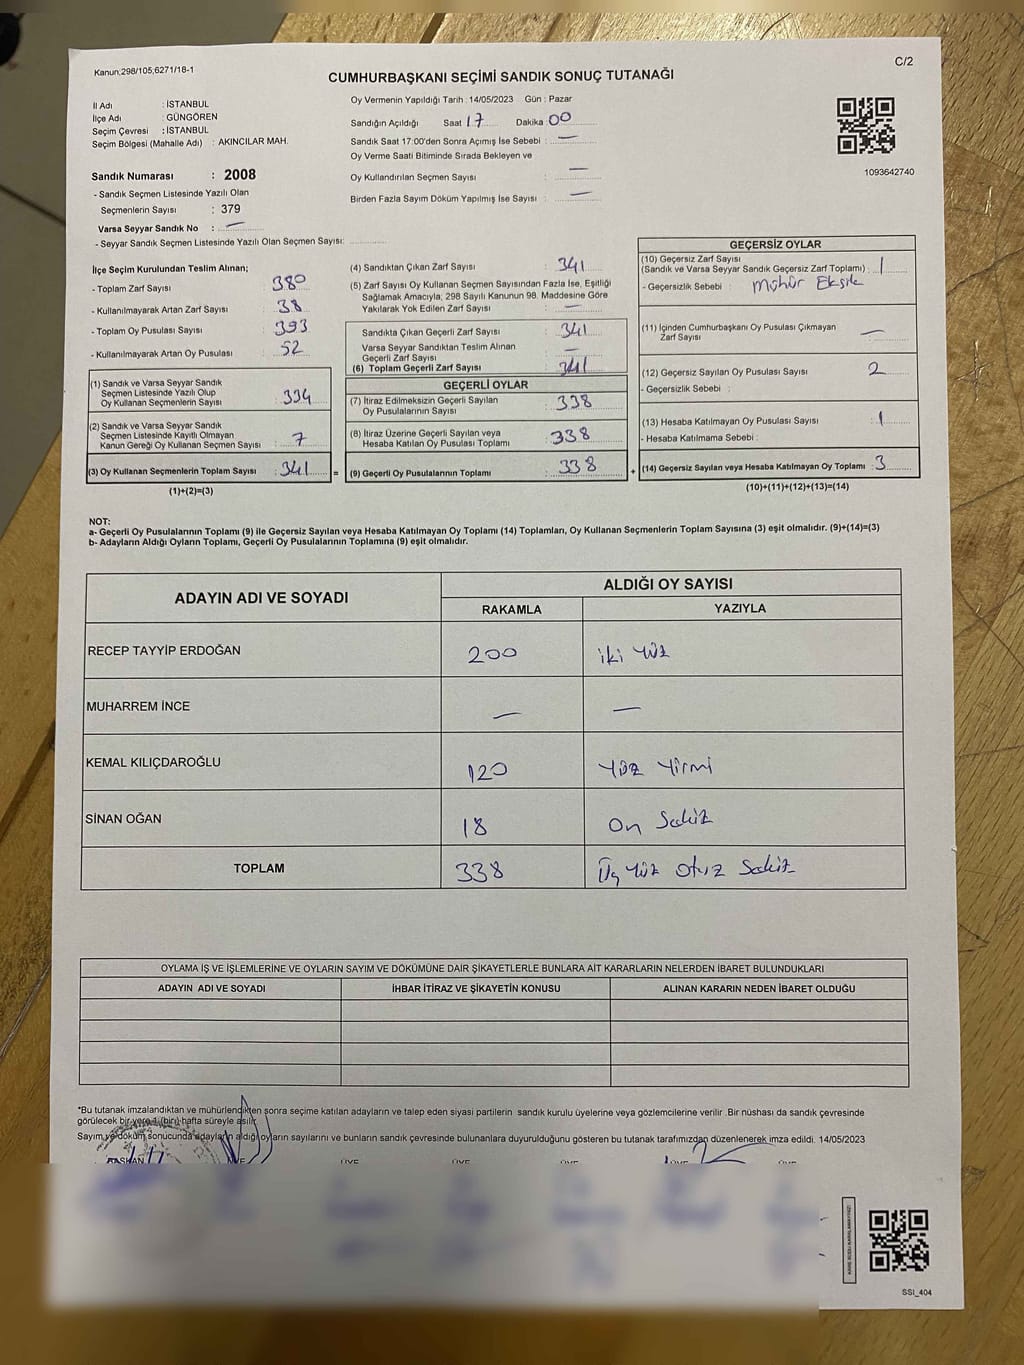 Kanun;298/105,6271/18-1
C/2
CUMHURBAŞKANI SEÇİMİ SANDIK SONUÇ TUTANAĞI
İl Adı : İSTANBUL
İlçe Adı : GÜNGÖREN
Seçim Çevresi : İSTANBUL
Seçim Bölgesi (Mahalle Adı) : AKINCILAR MAH.
Sandık Numarası : 2008
- Sandık Seçmen Listesinde Yazılı Olan
Seçmenlerin Sayısı : 379
Varsa Seyyar Sandık No : —
- Seyyar Sandık Seçmen Listesinde Yazılı Olan Seçmen Sayısı:
Oy Vermenin Yapıldığı Tarih : 14/05/2023 Gün : Pazar
Sandığın Açıldığı Saat 17 Dakika : 00
Sandık Saat 17:00'den Sonra Açımış İse Sebebi : —
Oy Verme Saati Bitiminde Sırada Bekleyen ve
Oy Kullandırılan Seçmen Sayısı : —
Birden Fazla Sayım Döküm Yapılmış İse Sayısı : —
1093642740
İlçe Seçim Kurulundan Teslim Alınan;
- Toplam Zarf Sayısı : 380
- Kullanılmayarak Artan Zarf Sayısı : 38
- Toplam Oy Pusulası Sayısı : 393
- Kullanılmayarak Artan Oy Pusulası : 52
(1) Sandık ve Varsa Seyyar Sandık
Seçmen Listesinde Yazılı Olup
Oy Kullanan Seçmenlerin Sayısı : 334
(2) Sandık ve Varsa Seyyar Sandık
Seçmen Listesinde Kayıtlı Olmayan
Kanun Gereği Oy Kullanan Seçmen Sayısı : 7
(3) Oy Kullanan Seçmenlerin Toplam Sayısı : 341
(1)+(2)=(3)
=
(4) Sandıktan Çıkan Zarf Sayısı : 341
(5) Zarf Sayısı Oy Kullanan Seçmen Sayısından Fazla İse, Eşitliği
Sağlamak Amacıyla; 298 Sayılı Kanunun 98. Maddesine Göre
Yakılarak Yok Edilen Zarf Sayısı : —
Sandıkta Çıkan Geçerli Zarf Sayısı : 341
Varsa Seyyar Sandıktan Teslim Alınan
Geçerli Zarf Sayısı : —
(6) Toplam Geçerli Zarf Sayısı : 341
GEÇERLİ OYLAR
(7) İtiraz Edilmeksizin Geçerli Sayılan
Oy Pusulalarının Sayısı : 338
(8) İtiraz Üzerine Geçerli Sayılan veya
Hesaba Katılan Oy Pusulası Toplamı : 338
(9) Geçerli Oy Pusulalarının Toplamı : 338
+
GEÇERSİZ OYLAR
(10) Geçersiz Zarf Sayısı
(Sandık ve Varsa Seyyar Sandık Geçersiz Zarf Toplamı) : 1
- Geçersizlik Sebebi : Mühür Eksik
(11) İçinden Cumhurbaşkanı Oy Pusulası Çıkmayan
Zarf Sayısı : —
(12) Geçersiz Sayılan Oy Pusulası Sayısı : 2
- Geçersizlik Sebebi :
(13) Hesaba Katılmayan Oy Pusulası Sayısı : 1
- Hesaba Katılmama Sebebi :
(14) Geçersiz Sayılan veya Hesaba Katılmayan Oy Toplamı : 3
(10)+(11)+(12)+(13)=(14)
NOT:
a- Geçerli Oy Pusulalarının Toplamı (9) ile Geçersiz Sayılan veya Hesaba Katılmayan Oy Toplamı (14) Toplamları, Oy Kullanan Seçmenlerin Toplam Sayısına (3) eşit olmalıdır. (9)+(14)=(3)
b- Adayların Aldığı Oyların Toplamı, Geçerli Oy Pusulalarının Toplamına (9) eşit olmalıdır.
ADAYIN ADI VE SOYADI
ALDIĞI OY SAYISI
RAKAMLA YAZIYLA
RECEP TAYYİP ERDOĞAN 200 iki Yüz
MUHARREM İNCE — —
KEMAL KILIÇDAROĞLU 120 Yüz Yirmi
SİNAN OĞAN 18 On Sekiz
TOPLAM 338 Üç Yüz Otuz Sekiz
OYLAMA İŞ VE İŞLEMLERİNE VE OYLARIN SAYIM VE DÖKÜMÜNE DAİR ŞİKAYETLERLE BUNLARA AİT KARARLARIN NELERDEN İBARET BULUNDUKLARI
ADAYIN ADI VE SOYADI İHBAR İTİRAZ VE ŞİKAYETİN KONUSU ALINAN KARARIN NEDEN İBARET OLDUĞU
*Bu tutanak imzalandıktan ve mühürlendikten sonra seçime katılan adayların ve talep eden siyasi partilerin sandık kurulu üyelerine veya gözlemcilerine verilir .Bir nüshası da sandık çevresinde
görülecek bir yere 1 (bir) hafta süreyle asılır.
Sayım ve döküm sonucunda adayların aldığı oyların sayılarını ve bunların sandık çevresinde bulunanlara duyurulduğunu gösteren bu tutanak tarafımızdan düzenlenerek imza edildi. 14/05/2023
BAŞKAN ÜYE ÜYE ÜYE ÜYE ÜYE ÜYE
SSI_404